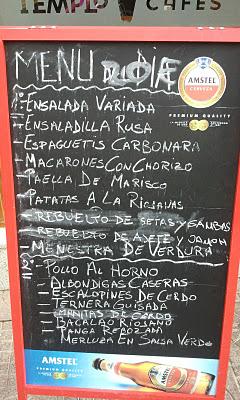 TEMPLO CAFÉS
MENU DEL DIA
AMSTEL
CERVEZA
PREMIUM QUALITY
1º
-ENSALADA VARIADA
-ENSALADILLA RUSA
-ESPAGUETIS CARBONARA
-MACARONES CON CHORIZO
-PAELLA DE MARISCO
-PATATAS A LA RIOJANAS
-REBUELTO DE SETAS Y GAMBAS
-REBUELTO DE AJETE Y JAMON
-MENESTRA DE VERDURA
2º
-POLLO AL HORNO
-ALBONDIGAS CASERAS
-ESCALOPINES DE CERDO
-TERNERA GUISADA
-MANITAS DE CERDO
-BACALAO RIOJANO
-PANGA REBOZADA
-MERLUZA EN SALSA VERDE
AMSTEL
PREMIUM QUALITY
AMSTEL